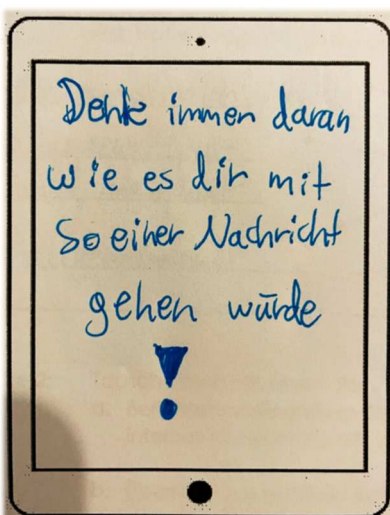 Denk immer daran
wie es dir mit
so einer Nachricht
gehen würde
!